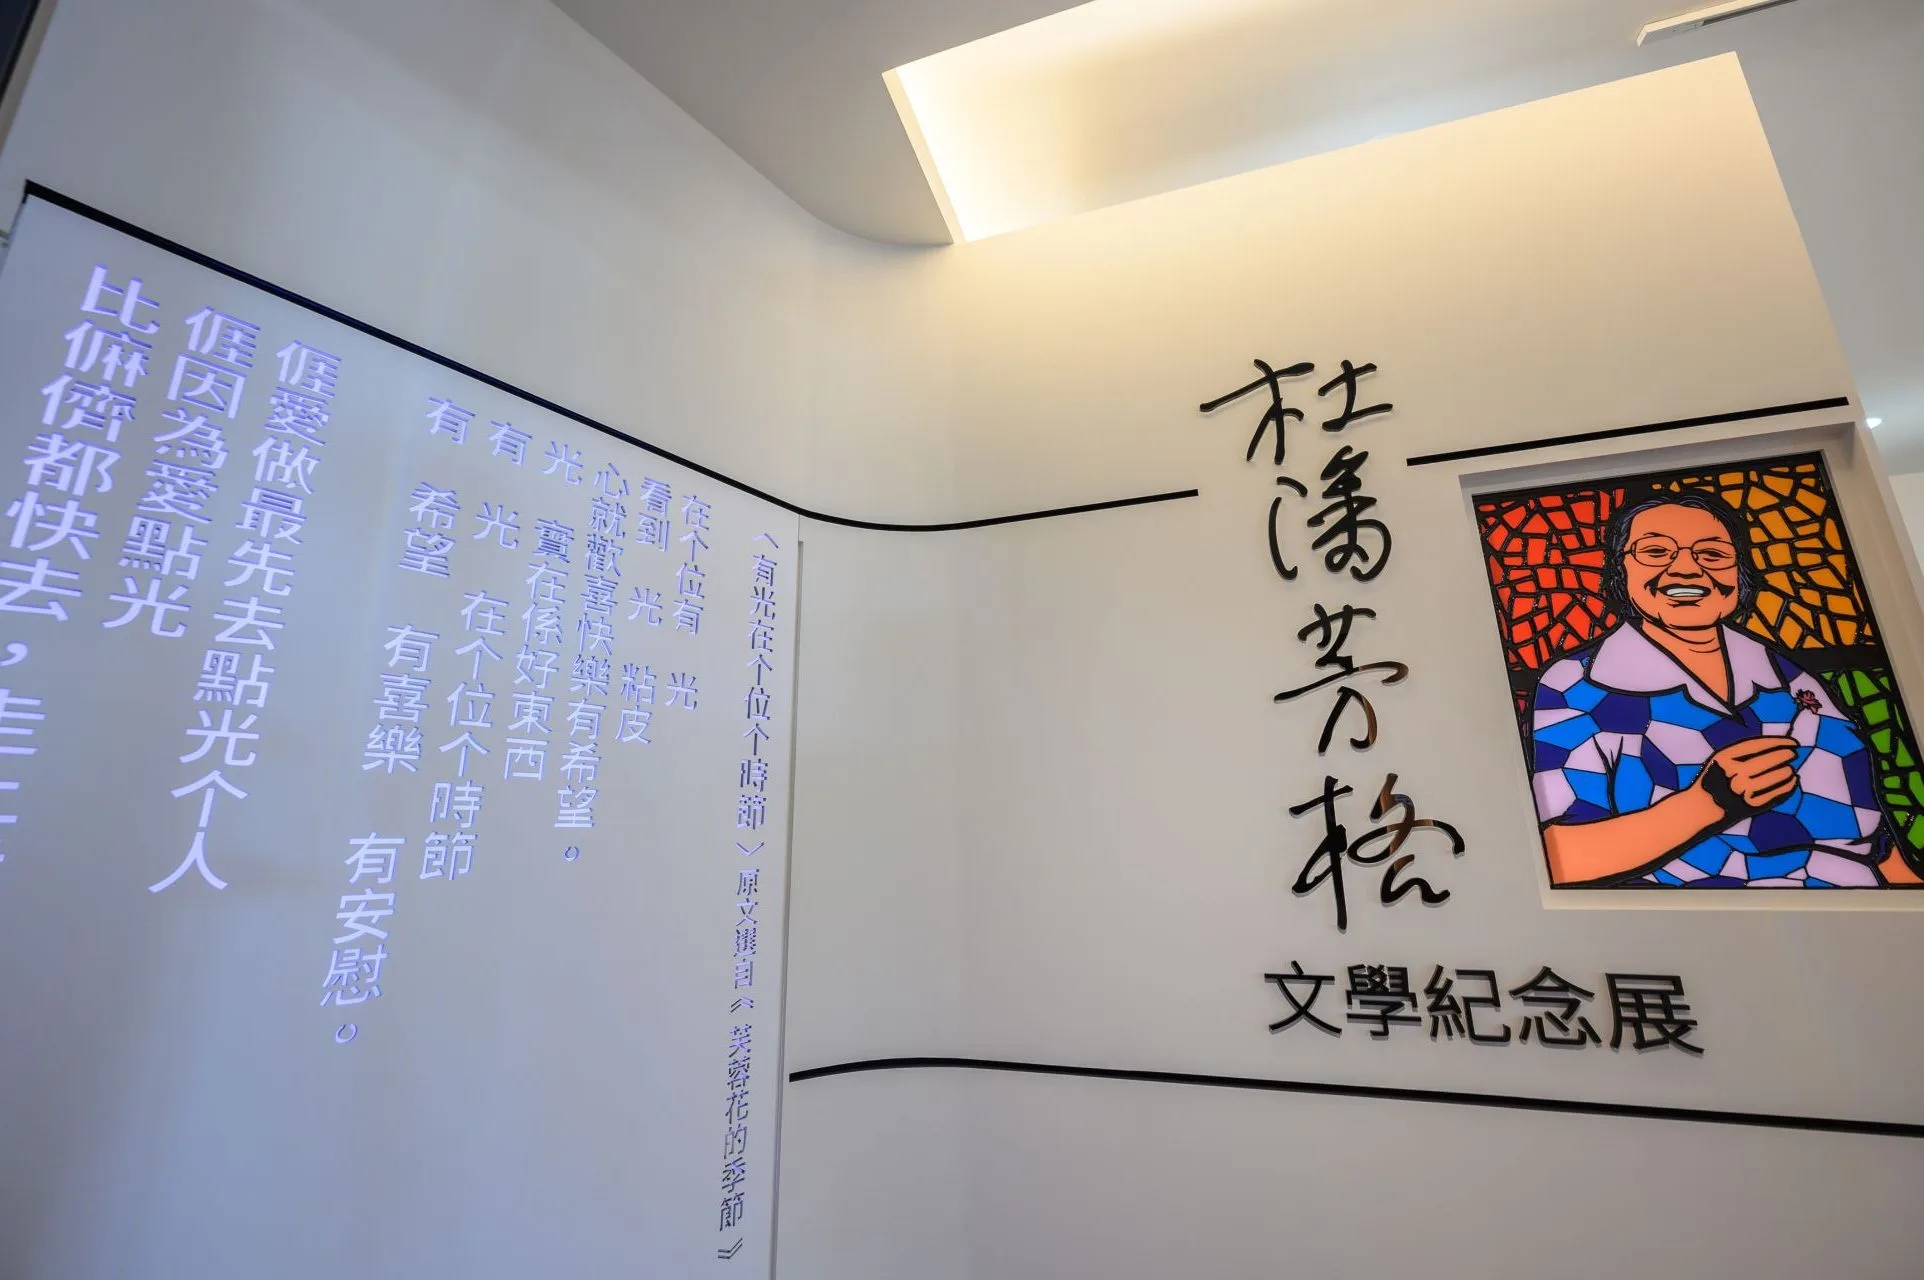 杜潘芳格
文學紀念展
〈有光在个位个時節〉原文選自《芙蓉花的季節》
在个位有 光
看到 光 粘皮
心就歡喜快樂有希望。
光 實在係好東西
有 光 在个位个時節
有 希望 有喜樂 有安慰。
𠊎愛做最先去點光个人
𠊎因為愛點光
比儕都快去，